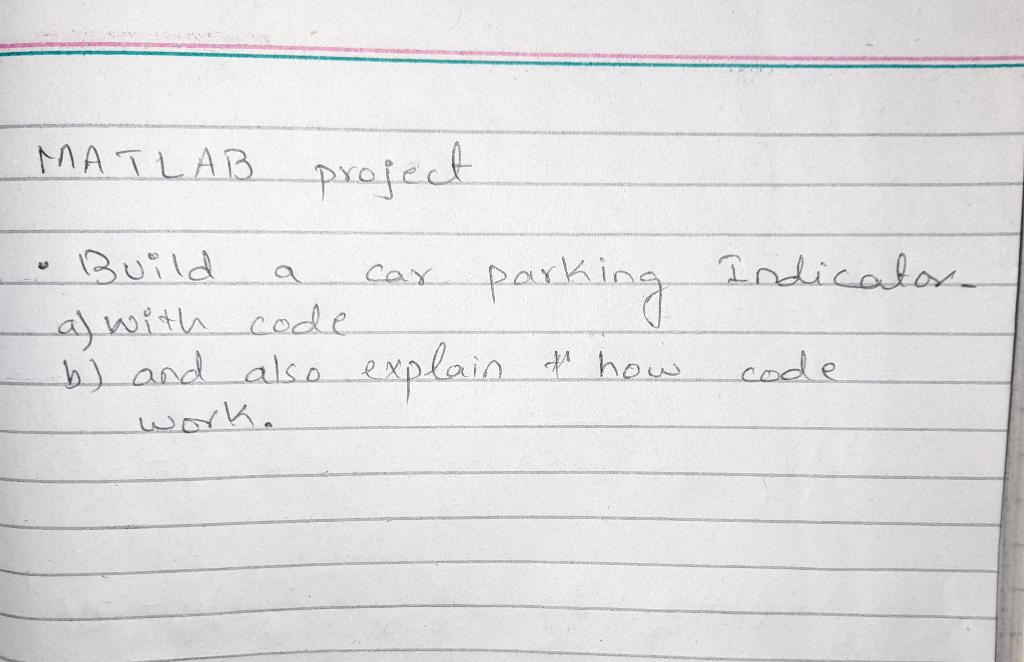 MATLAB project
• Build a car parking Indicator
a) with code
b) and also explain how code
work.